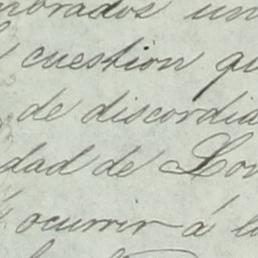 mbrados un
cuestion qu
de discordia
dad de Lon
ocurrir á la